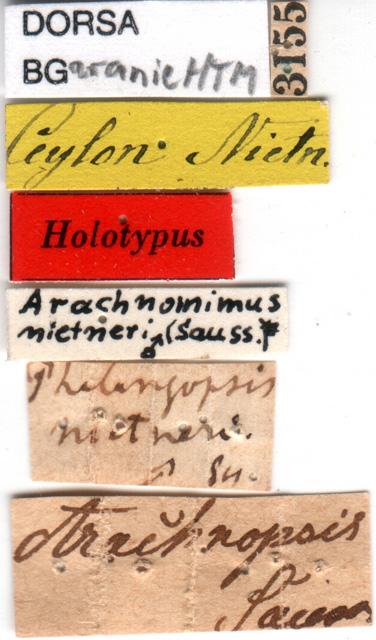 DORSA
BGaranieHTM
3155
Ceylon. Nietn.
Holotypus
Arachnomimus
nietneri ♂ (Sauss.)*
Phalangopsis
nietneri.
♂ Su.
Arachnopsis
Sauss